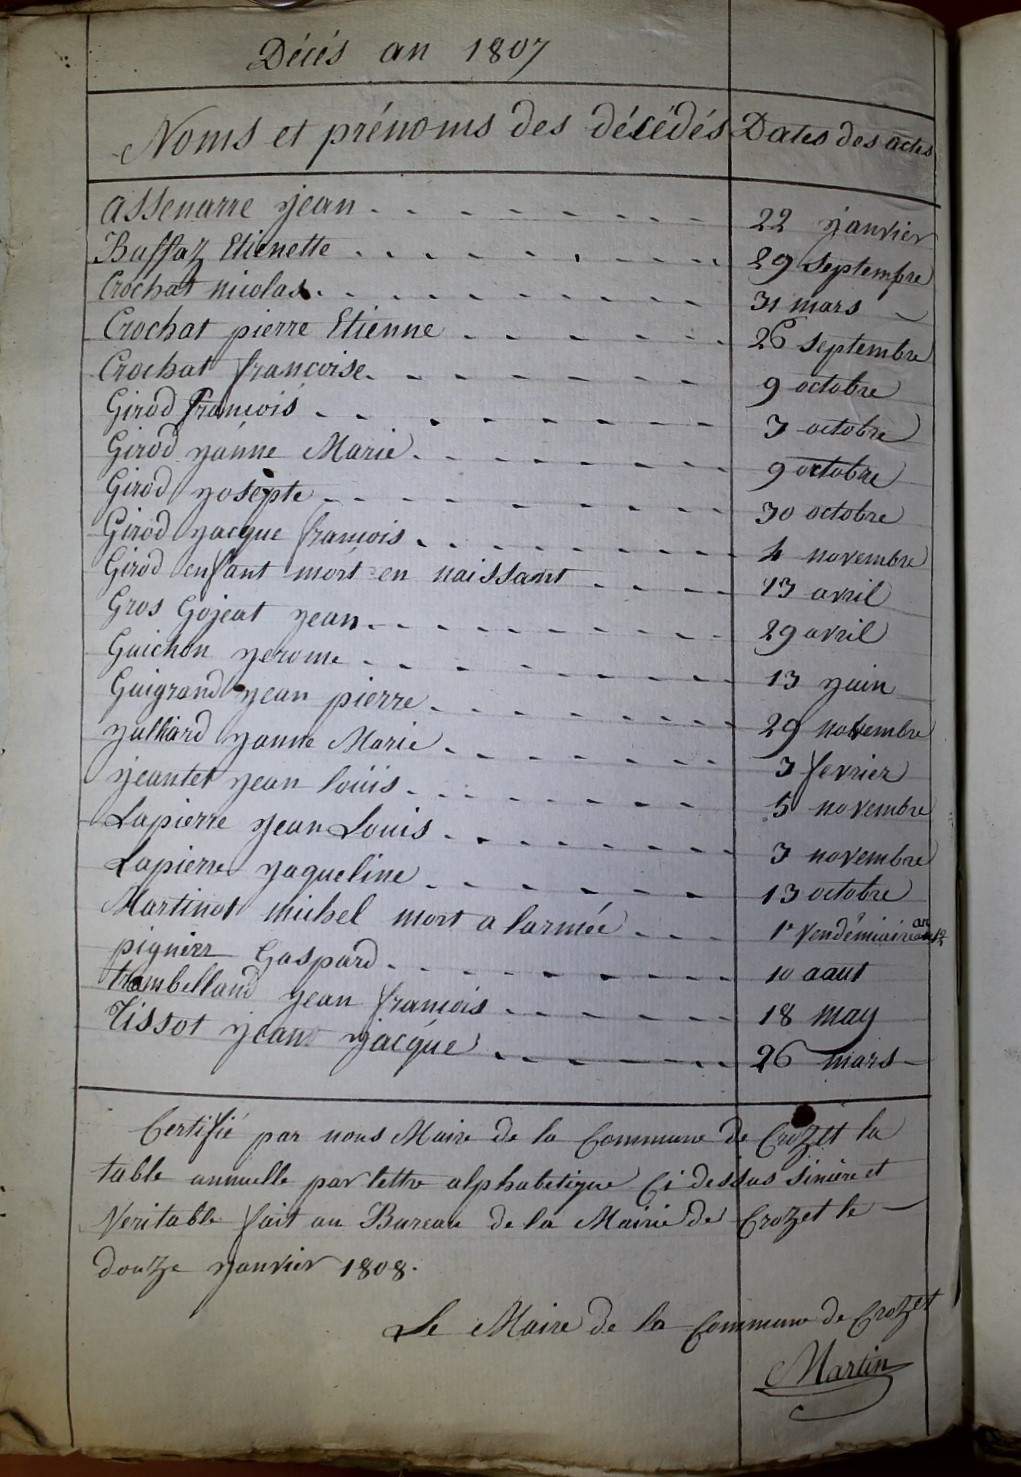 Décés an 1807
Noms et prénoms des décédés Dates des actes
Assenarre jean 22 janvier
Buffaz Etienette 29 septembre
Crochat nicolas 31 mars
Crochat pierre Etienne 26 septembre
Crochat françoise 9 octobre
Girod françois 3 octobre
Girod janne Marie 9 octobre
Girod josepte 30 octobre
Girod jacque françois 4 novembre
Girod enfant mort en naissant 13 avril
Gros Gojeat jean 29 avril
Guichon jerome 13 juin
Guigrand jean pierre 29 novembre
julliard janne Marie 3 fevrier
jeantet jean louis 5 novembre
Lapierre jean Louis 3 novembre
Lapierre jaqueline 13 octobre
Martinot michel mort a larmée 1r Vendémiaire an
Gaspard 10 aaut
trambelland jean françois 18 may
Tissot jean jacque 26 mars
Certifié par nous Maire de la Commune de Crozet la
table annuelle par lettre alphabetique Ci dessus sincere et
Veritable fait au Bureau de la Mairie de Crozet le
douze janvier 1808.
Le Maire de la Commune de Crozet
Martin